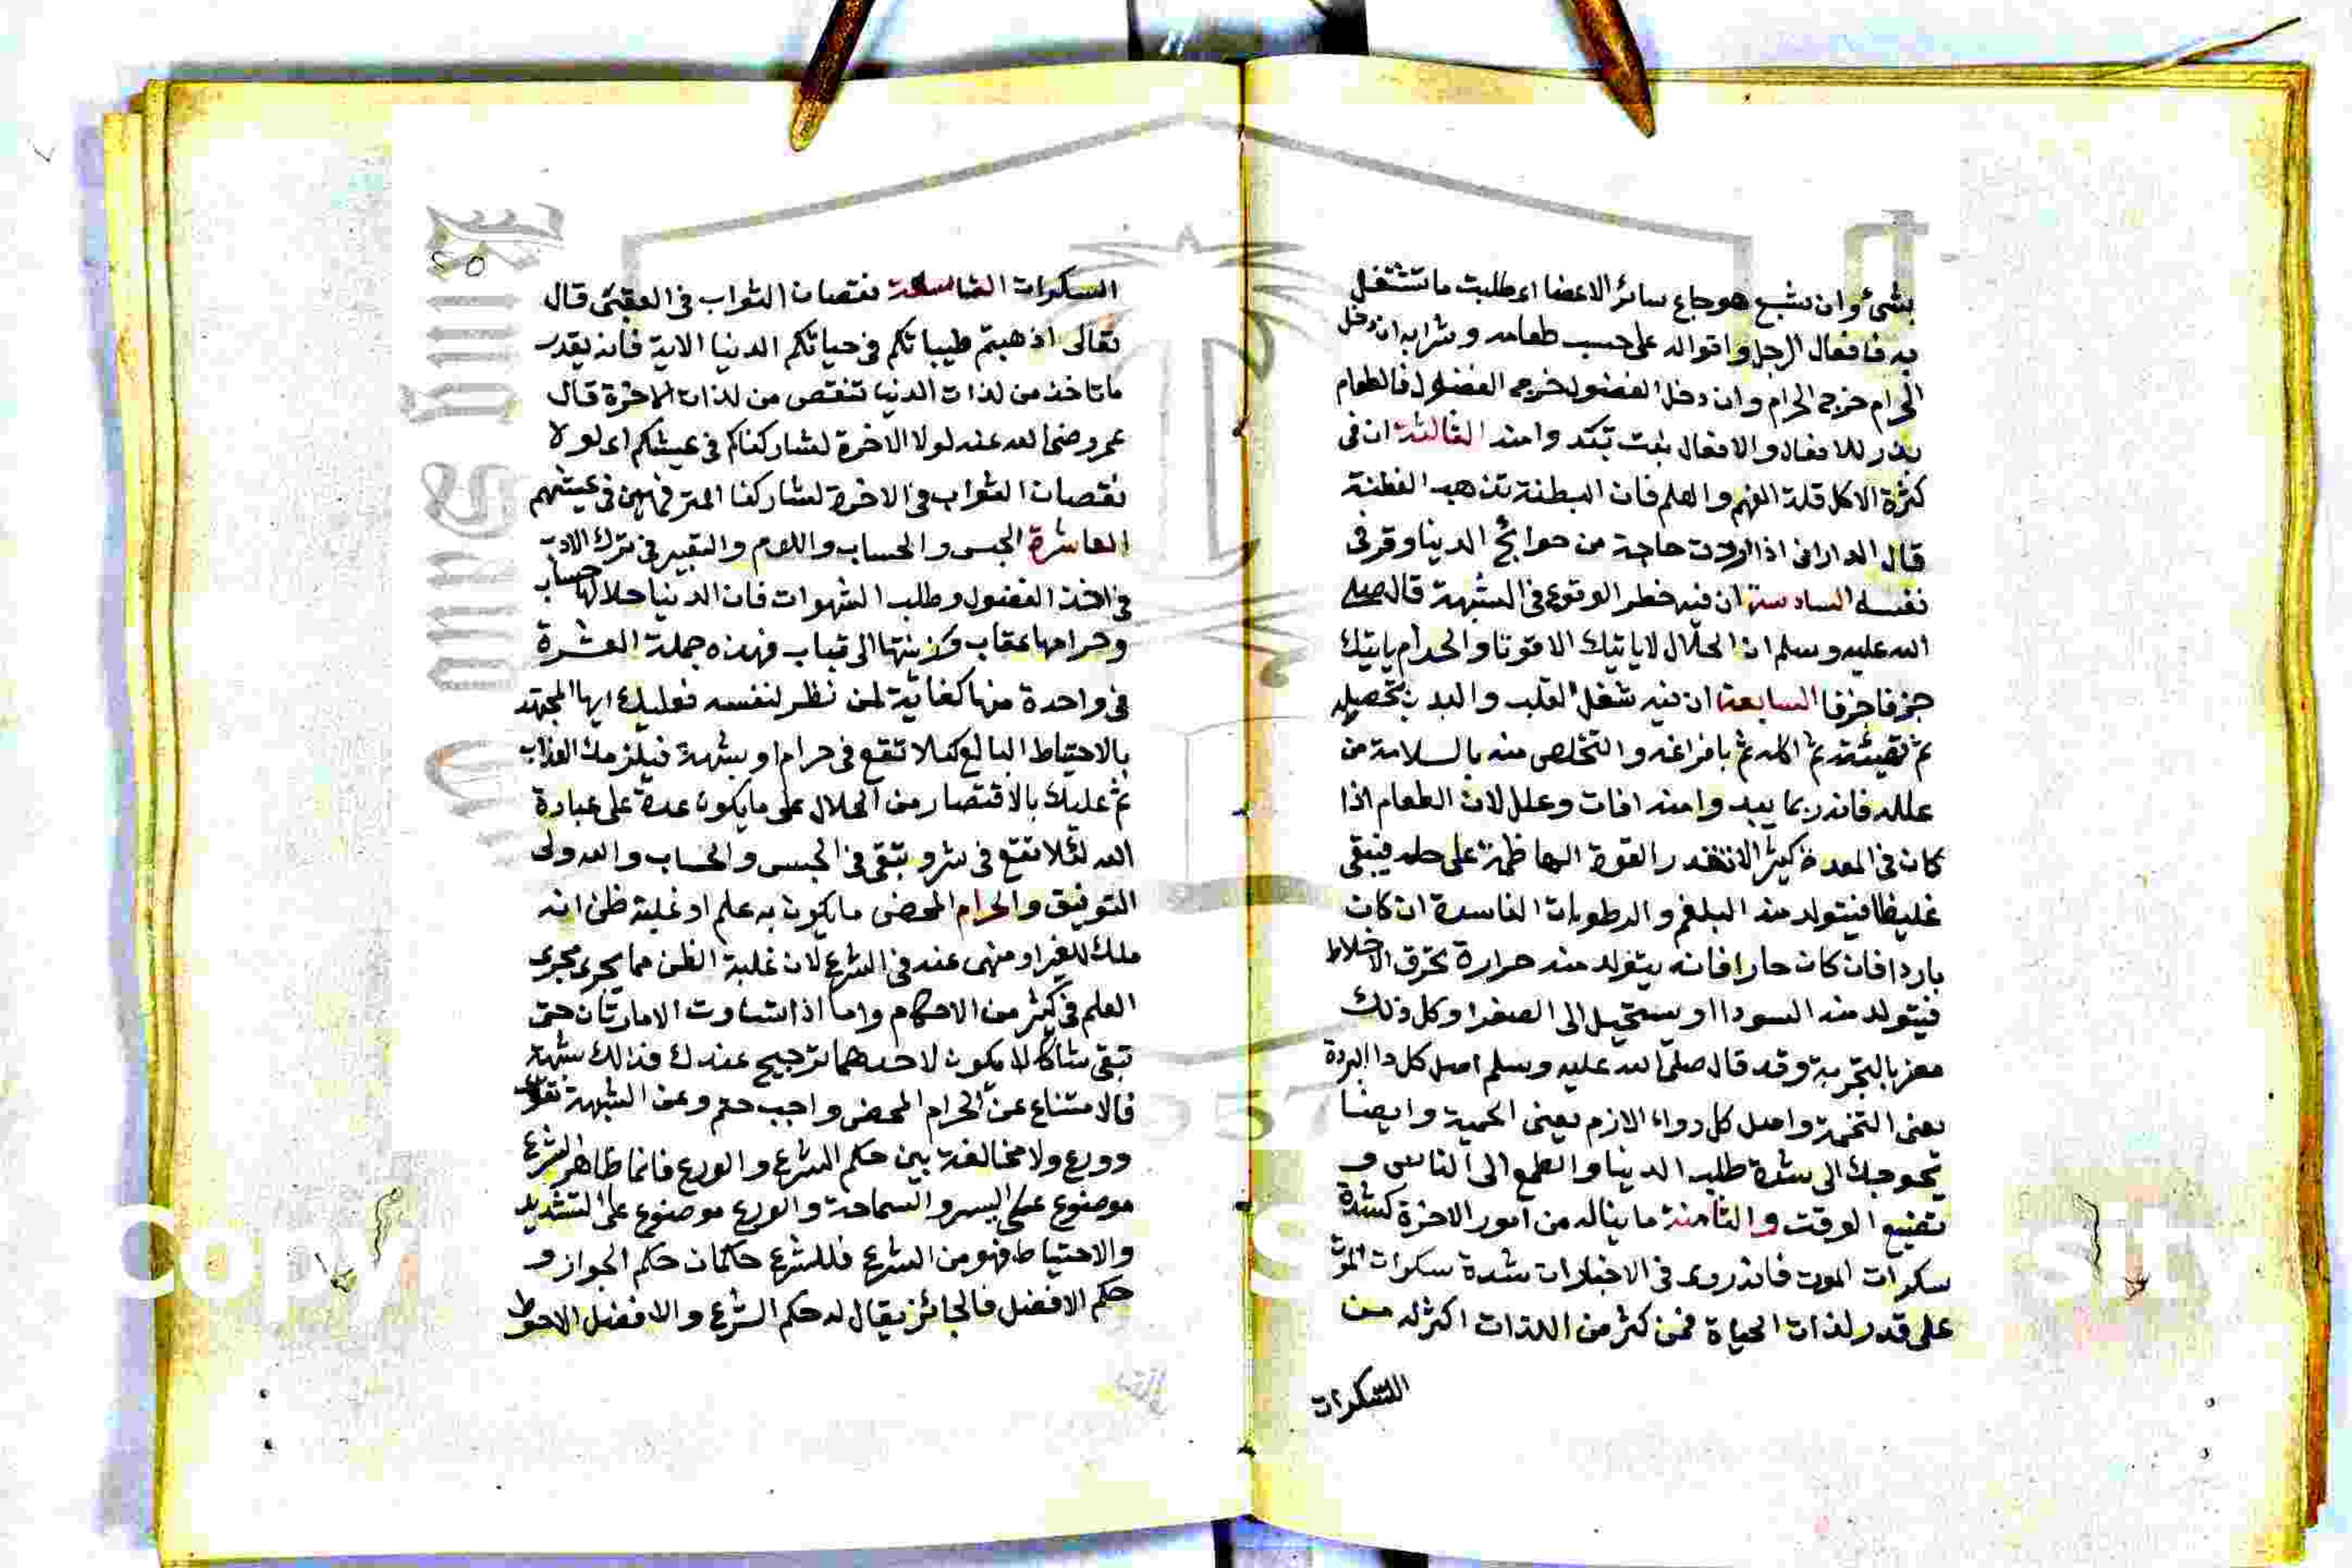 بشئ وان شبع هو جاع سائر الاعضا اي طلبت ما تشتغل
به فافعال الرجل واقواله على حسب طعامه وشرابه ان دخل
الحرام خرج الحرام وان دخل الفضول خرج الفضول فالطعام
بذر للافعال والافعال نبت تبدو امنه الثالثة ان في
كثرة الاكل قلة الفهم والعلم فان البطنة تذهب الفطنة
قال الداراني اذا اردت حاجة من حوائج الدنيا و في
نفسه السادسة ان فيه خطر الوقوع في الشبهة قال صلى
الله عليه وسلم ان الحلال لا ياتيك الا قوتا والحرام ياتيك
جزفا جزفا السابعة ان فيه شغل القلب والبدن بتحصيله
ثم تهيئته ثم اكله ثم بافراغه والتخلص منه بالسلامة من
علله فانه ربما يبدوا منه افات وعلل لان الطعام اذا
كان في المعدة كثيرا لا تقدر القوة الهاظمة على حله فيبقى
غليظا فيتولد منه البلغم والرطوبات الفاسدة ان كان
باردا فان كان حارا فانه يتولد منه حرارة تحرق الاخلاط
فيتولد منه السودا او يستحيل الى الصفرا وكل ذلك
مضر بالتجربة وقد قال صلى الله عليه وسلم اصل كل دا البردة
يعنى التخمة واصل كل دواء الازم يعنى الحمية وايضا
تحوجك الى شدة طلب الدنيا والطمع الى الناس و
تضيع الوقت والثامنة ما يناله من امور الاخرة كشدة
سكرات الموت فانه روى في الاخبار ان شدة سكرات الموت
على قدر لذات الحياة فمن كثر من اللذات اكثر له من
السكرات
السكرات التاسعة نقصان الثواب في العقبى قال
تعالى اذهبتم طيباتكم في حياتكم الدنيا الاية فانه بقدر
ما تاخذ من لذات الدنيا تنقص من لذات الاخرة قال
عمر رضى الله عنه لولا الاخرة لشاركناكم في عيشكم اي لولا
نقصان الثواب في الاخرة لشاركنا المترفهين في عيشهم
العاشرة الحبس والحساب واللوم والتعيير في ترك الادب
في اخذ الفضول وطلب الشهوات فان الدنيا حلالها حساب
وحرامها عقاب وزينتها الى تباب فهذه جملة العشرة
في واحدة منها كفاية لمن نظر لنفسه فعليك ايها المجتهد
بالاحتياط البالغ كيلا تقع في حرام او شبهة فيلزمك العذاب
ثم عليك بالاقتصار من الحلال على ما يكون عدة على عبادة
الله لئلا تقع في شر و تبقى في الحبس والحساب والله ولى
التوفيق والحرام المحض ما يكون به علم او غلبة ظن انه
ملك للغير او منهى عنه في الشرع لان غلبة الظن مما يجرى مجرى
العلم في كثير من الاحكام واما اذا تساوت الامارتان حتى
تبقى شاكا لا يكون لاحدهما ترجيح عندك فذلك شبهة
فالامتناع عن الحرام المحض واجب حتم وعن الشبهة تقوى
وورع ولا مخالفة بين حكم الشرع والورع فانما ظاهر الشرع
موضوع على اليسر والسماحة والورع موضوع على التشديد
والاحتياط فهو من الشرع فللشرع حكمان حكم الجواز و
حكم الافضل فالجائز يقال له حكم الشرع والافضل الاحوط